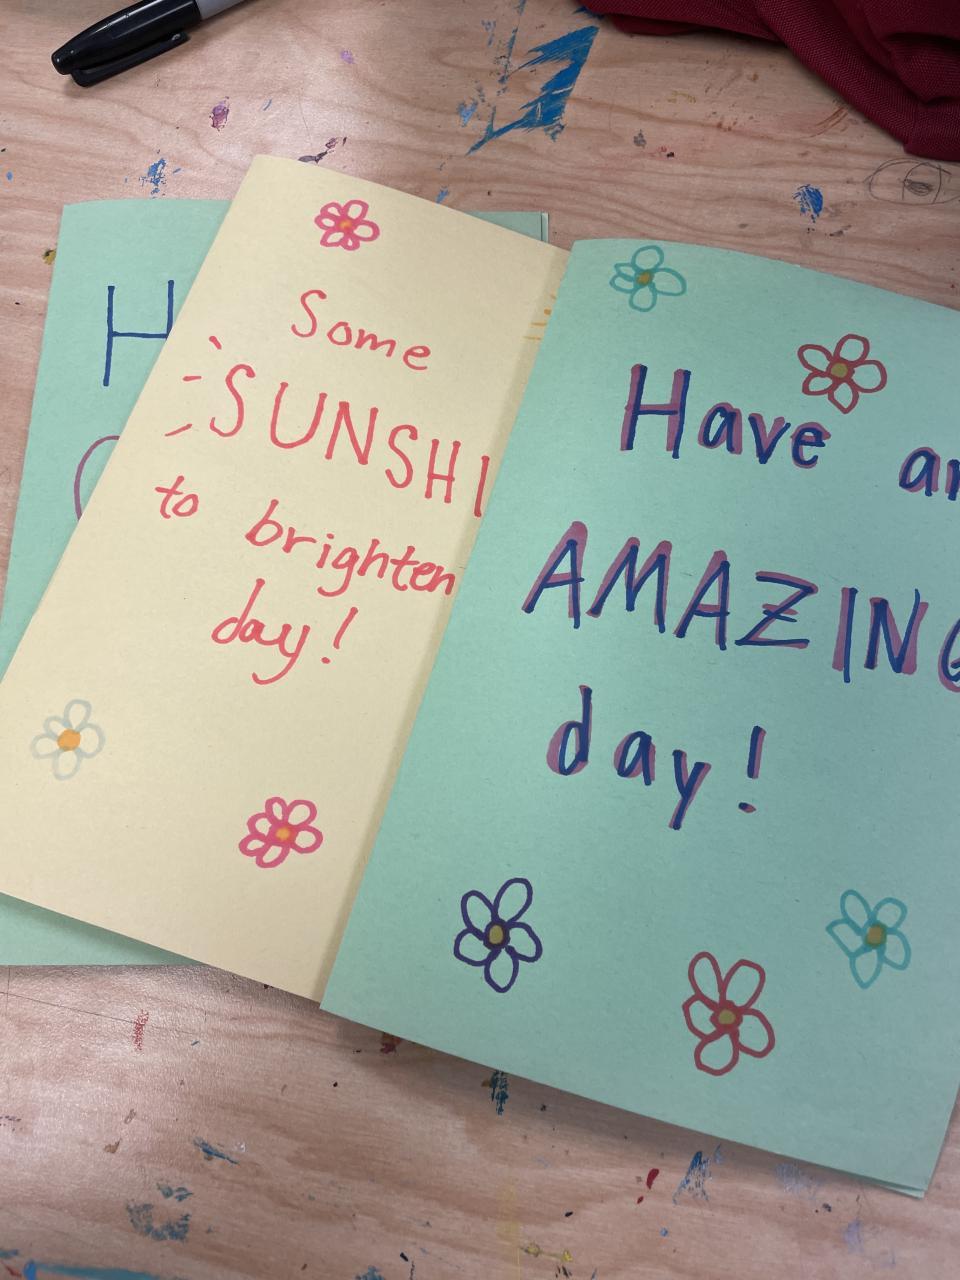 H
Some
SUNSHI
to brighten
day!
Have an
AMAZING
day!